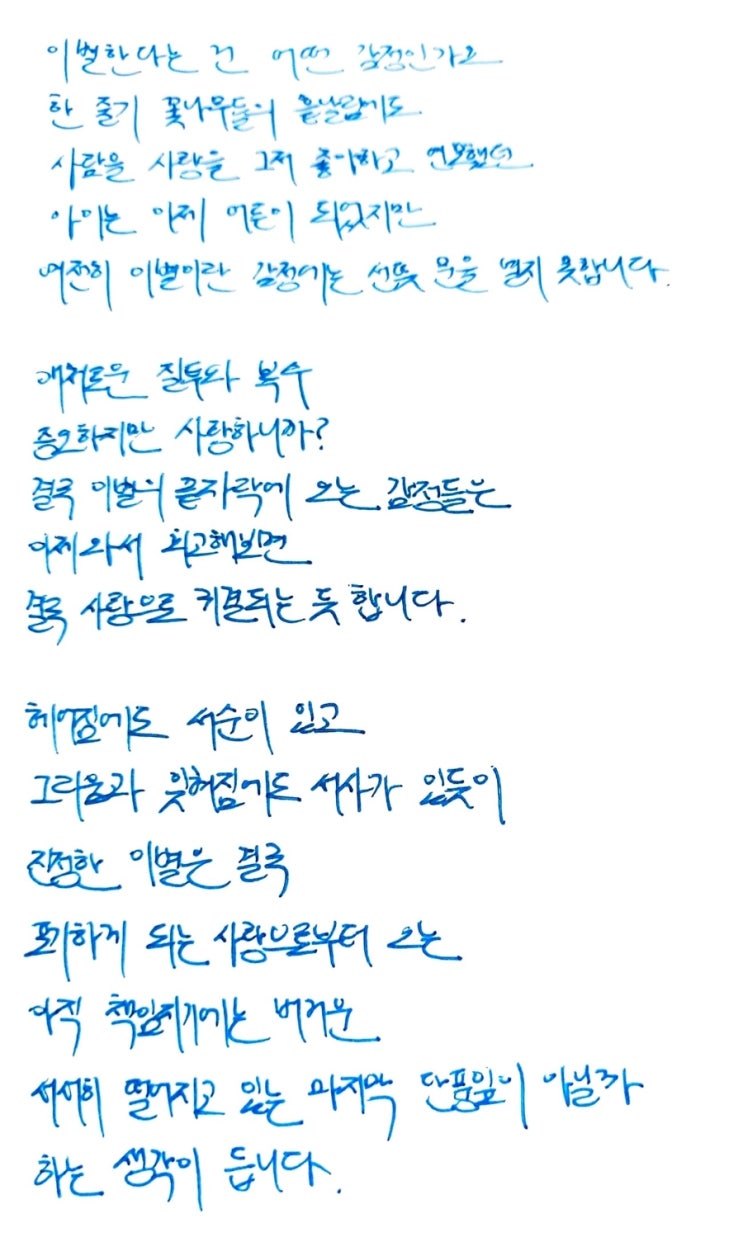 이별한다는 건 어떤 감정인가요
한 줄기 꽃나무들의 흩날림에도
사람을 사랑을 그저 좋아하고 연모했던
아이는 이제 어른이 되었지만
여전히 이별이란 감정에는 선뜻 문을 열지 못합니다.
애처로운 질투와 복수
증오하지만 사랑하니까?
결국 이별의 끝자락에 오는 감정들은
이제와서 회고해보면
결국 사랑으로 귀결되는 듯 합니다.
헤어짐에도 서순이 있고
그리움과 잊혀짐에도 서사가 있듯이
진정한 이별은 결국
포기하게 되는 사랑으로부터 오는
아직 책임지기에는 버거운
서서히 떨어지고 있는 마지막 단풍잎이 아닐까
하는 생각이 듭니다.